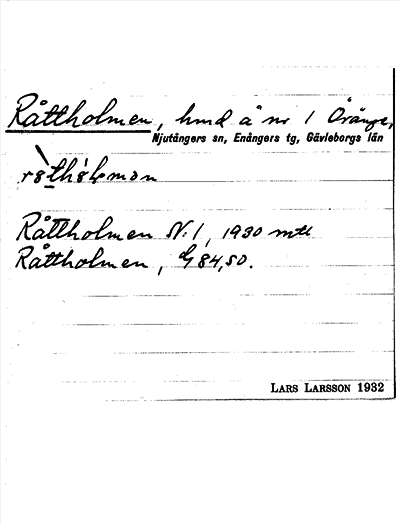 Råttholmen, hmd å nr 1 Öränge,
Njutångers sn, Enångers tg, Gävleborgs län
Råttholmen N:1, 1930 mtl
Råttholmen, G 84,50.
LARS LARSSON 1932